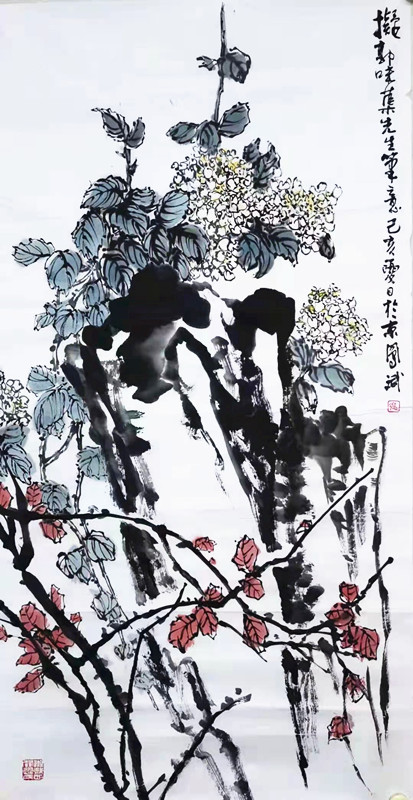 擬郭味蕖先生筆意己亥夏日於京國斌